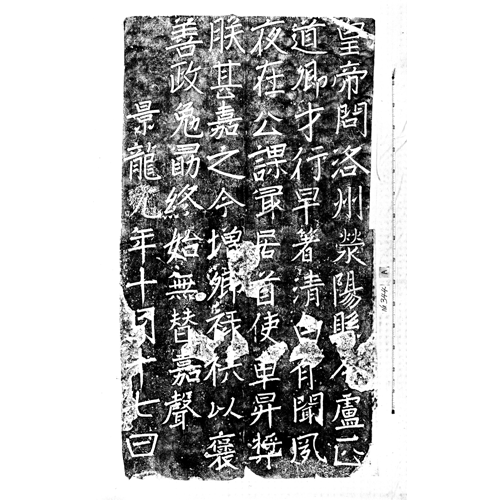 皇帝問洛州滎陽縣令盧正
道卿才行早著清白有聞夙
夜在公課最居首使車昇獎
朕甚嘉之今增卿祿秩以褒
善政勉勗終始無替嘉聲
景龍元年十月十七日
№3444